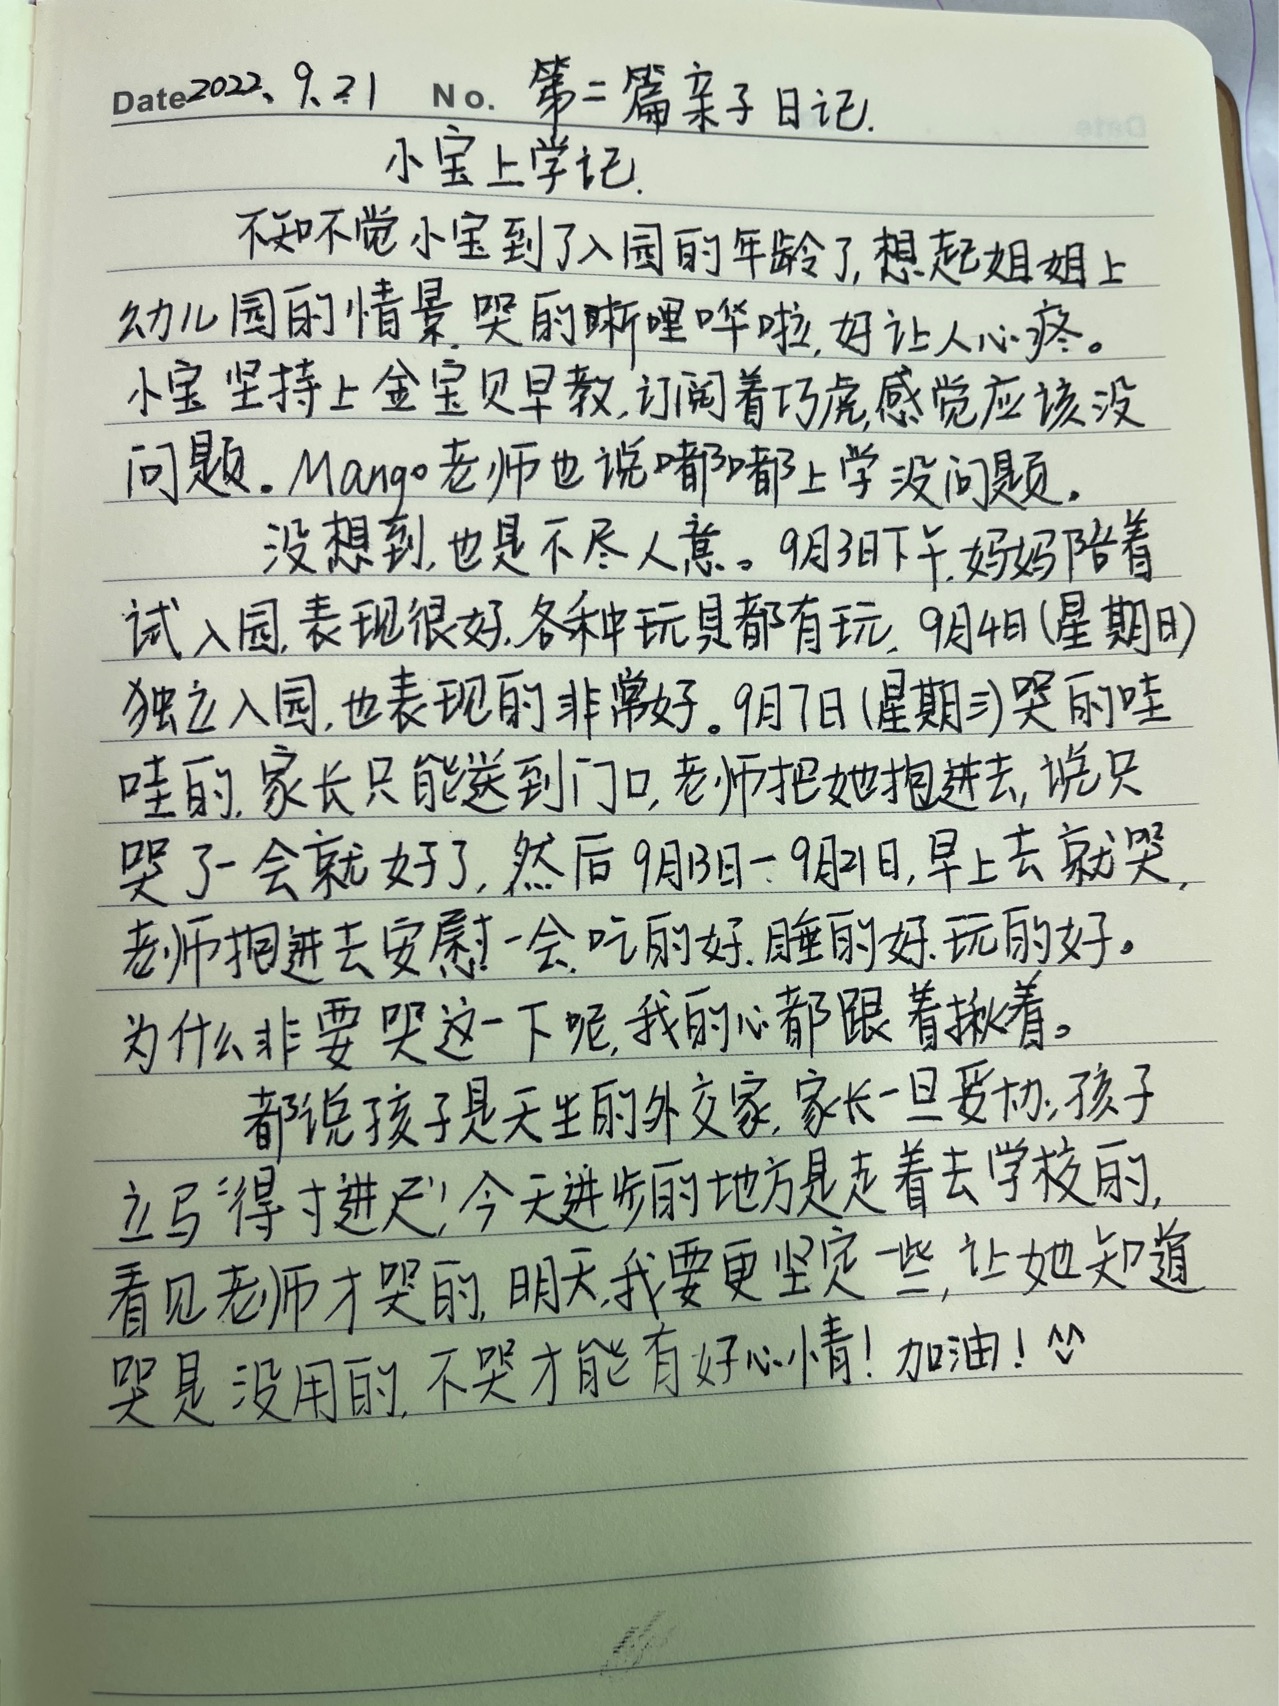 Date 2022.9.21 No. 第二篇亲子日记.
小宝上学记.
不知不觉小宝到了入园的年龄了,想起姐姐上
幼儿园的情景,哭的晰哩哗啦,好让人心疼。
小宝坚持上金宝贝早教,订阅着巧虎,感觉应该没
问题。Mango老师也说嘟嘟上学没问题。
没想到,也是不尽人意。9月3日下午,妈妈陪着
试入园,表现很好,各种玩具都有玩,9月4日(星期日)
独立入园,也表现的非常好。9月7日(星期三)哭的哇
哇的,家长只能送到门口,老师把她抱进去,说只
哭了一会就好了,然后9月13日—9月21日,早上去就哭,
老师抱进去安慰一会,吃的好.睡的好.玩的好。
为什么非要哭这一下呢,我的心都跟着揪着。
都说孩子是天生的外交家,家长一旦妥协,孩子
立马“得寸进尺”,今天进步的地方是走着去学校的,
看见老师才哭的,明天,我要更坚定一些,让她知道
哭是没用的,不哭才能有好心情!加油!^^